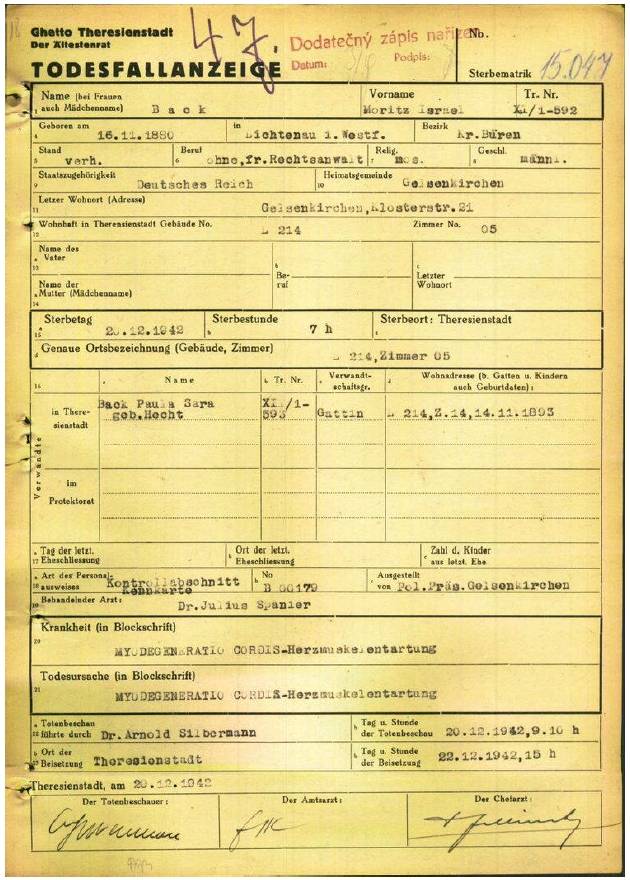 Ghetto Theresienstadt
Der Ältestenrat
TODESFALLANZEIGE
47.
Dodatečný zápis nařízen
Datum: Podpis:
No.
Sterbematrik 15.047
Name (bei Frauen auch Mädchenname) Back
Vorname Moritz Israel
Tr. Nr. XI/1-592
4 Geboren am 16.11.1880 in Lichtenau i.Westf. Bezirk Kr.Büren
5 Stand verh. 6 Beruf ohne,fr.Rechtsanwalt 7 Relig. mos. 8 Geschl. männl.
9 Staatszugehörigkeit Deutsches Reich 10 Heimatsgemeinde Gelsenkirchen
11 Letzer Wohnort (Adresse) Gelsenkirchen,Klosterstr.21
12 Wohnhaft in Theresienstadt Gebäude No. L 214 Zimmer No. 05
13 a Name des Vater
b Beruf
c Letzter Wohnort
14 a Name der Mutter (Mädchenname)
15 a Sterbetag 20.12.1942 b Sterbestunde 7 h c Sterbeort: Theresienstadt
d Genaue Ortsbezeichnung (Gebäude, Zimmer) L 214,Zimmer 05
16 a Name b Tr. Nr. c Verwandtschaftsgr. d Wohnadresse (b. Gatten u. Kindern auch Geburtdaten):
Verwandte
in Theresienstadt
Back Paula Sara geb.Hecht XII/1-593 Gattin L 214,Z.14,14.11.1893
im Protektorat
17 a Tag der letzt. Eheschliessung b Ort der letzt. Eheschliessung c Zahl d. Kinder aus letzt. Ehe
18 a Art des Personalausweises Kontrollabschnitt Kennkarte b No B 00179 c Ausgestellt von Pol.Präs.Gelsenkirchen
19 Behandelnder Arzt: Dr.Julius Spanier
Krankheit (in Blockschrift)
20 MYODEGENERATIO CORDIS-Herzmuskelentartung
Todesursache (in Blockschrift)
21 MYODEGENERATIO CORDIS-Herzmuskelentartung
22 a Totenbeschau führte durch Dr.Arnold Silbermann b Tag u. Stunde der Totenbeschau 20.12.1942,9.10 h
23 a Ort der Beisetzung Theresienstadt b Tag u. Stunde der Beisetzung 22.12.1942,15 h
Theresienstadt, am 20.12.1942
Der Totenbeschauer: Der Amtsarzt: Der Chefarzt: